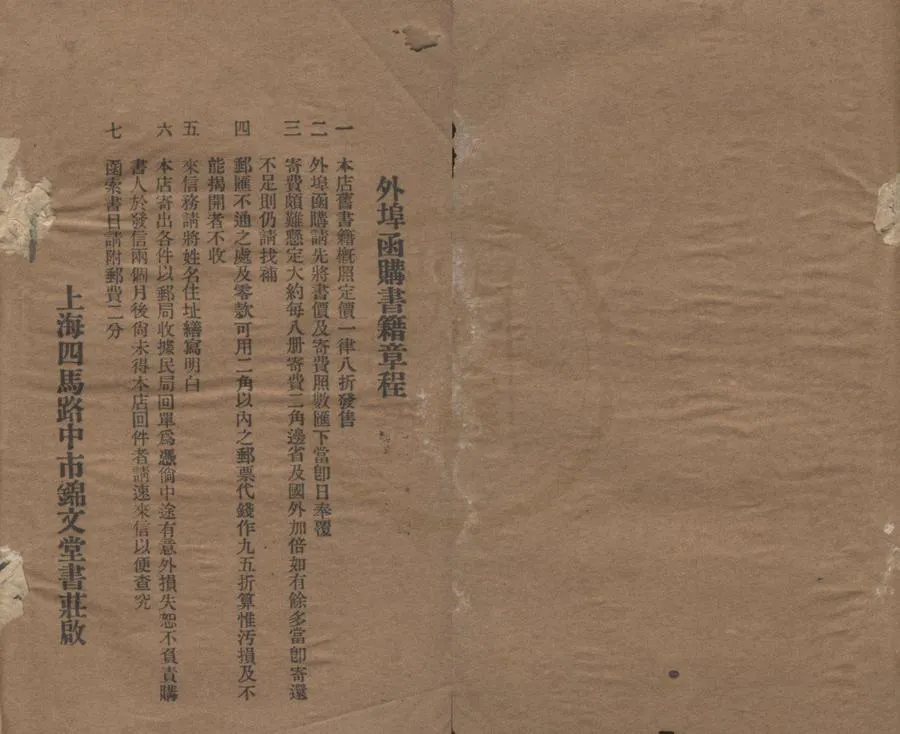 外埠函購書籍章程
一 本店舊書籍槪照定價一律八折發售
二 外埠函購請先將書價及寄費照數匯下當卽日奉覆
三 寄費頗難懸定大約每八册寄費二角邊省及國外加倍如有餘多當卽寄還
不足則仍請找補
四 郵匯不通之處及零款可用二角以內之郵票代錢作九五折算惟汚損及不
能揭開者不收
五 來信務請將姓名住址繕寫明白
六 本店寄出各件以郵局收據民局回單爲憑倘中途有意外損失恕不負責購
書人於發信兩個月後尙未得本店回件者請速來信以便查究
七 函索書目請附郵費二分
上海四馬路中市錦文堂書莊啟